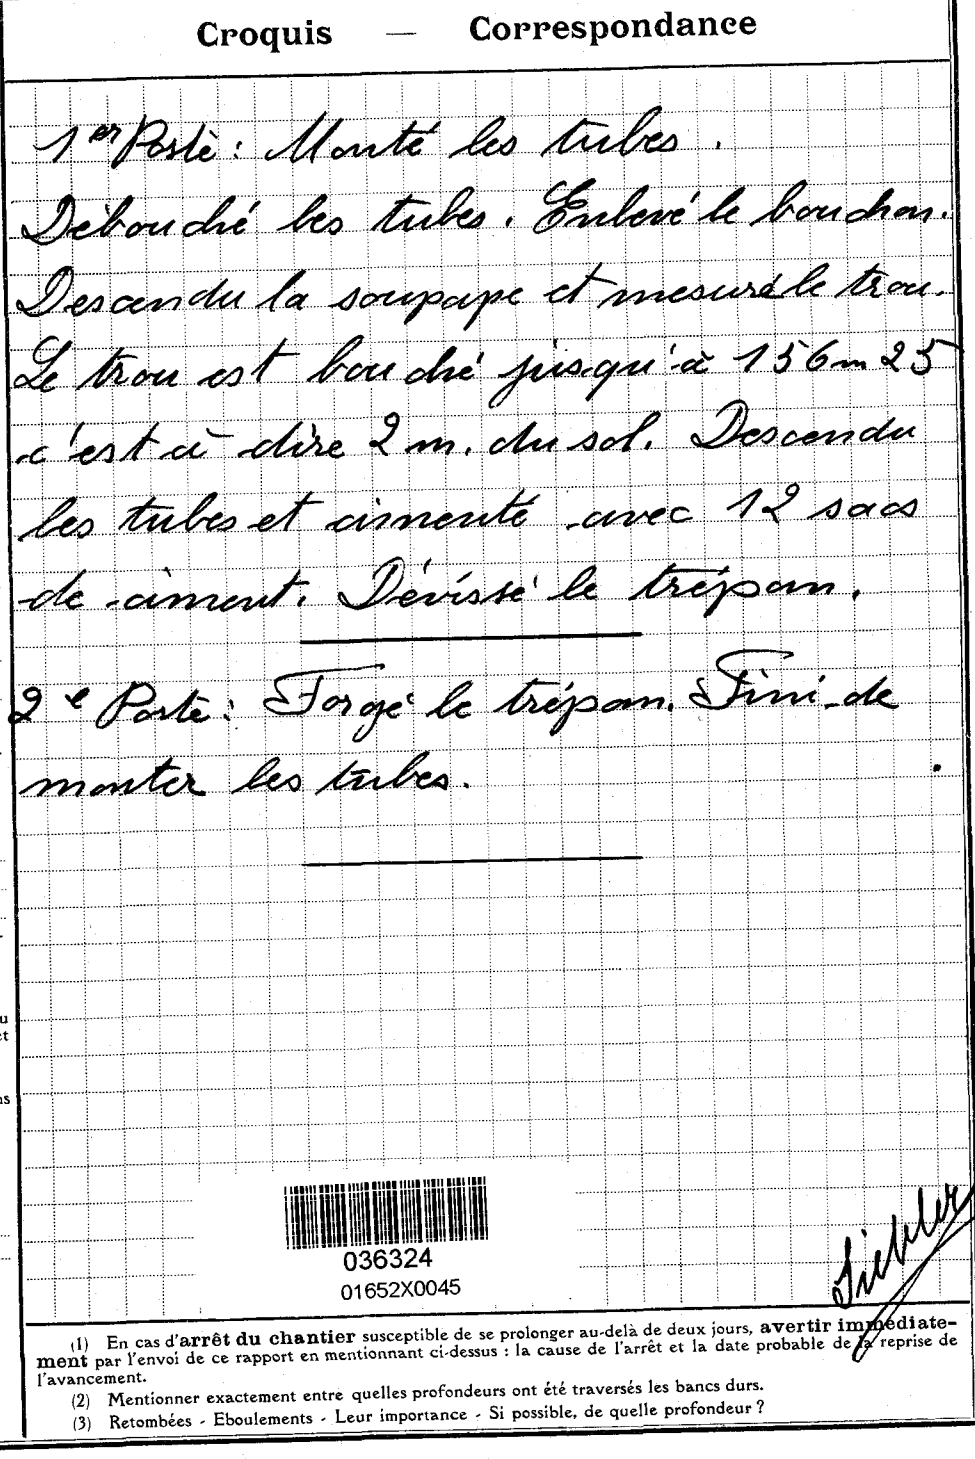 Croquis — Correspondance
1er Poste : Monté les tubes.
Débouché les tubes. Enlevé le bouchon.
Descendu la soupape et mesuré le trou.
Le trou est bouché jusqu'à 156m25
c'est à dire 2 m. du sol. Descendu
les tubes et cimenté avec 12 sacs
de ciment. Dévissé le trépan.
2e Poste : Forgé le trépan. Fini de
monter les tubes.
036324
01652X0045
(1) En cas d'arrêt du chantier susceptible de se prolonger au-delà de deux jours, avertir immédiate-
ment par l'envoi de ce rapport en mentionnant ci-dessus : la cause de l'arrêt et la date probable de la reprise de
l'avancement.
(2) Mentionner exactement entre quelles profondeurs ont été traversés les bancs durs.
(3) Retombées - Eboulements - Leur importance - Si possible, de quelle profondeur ?